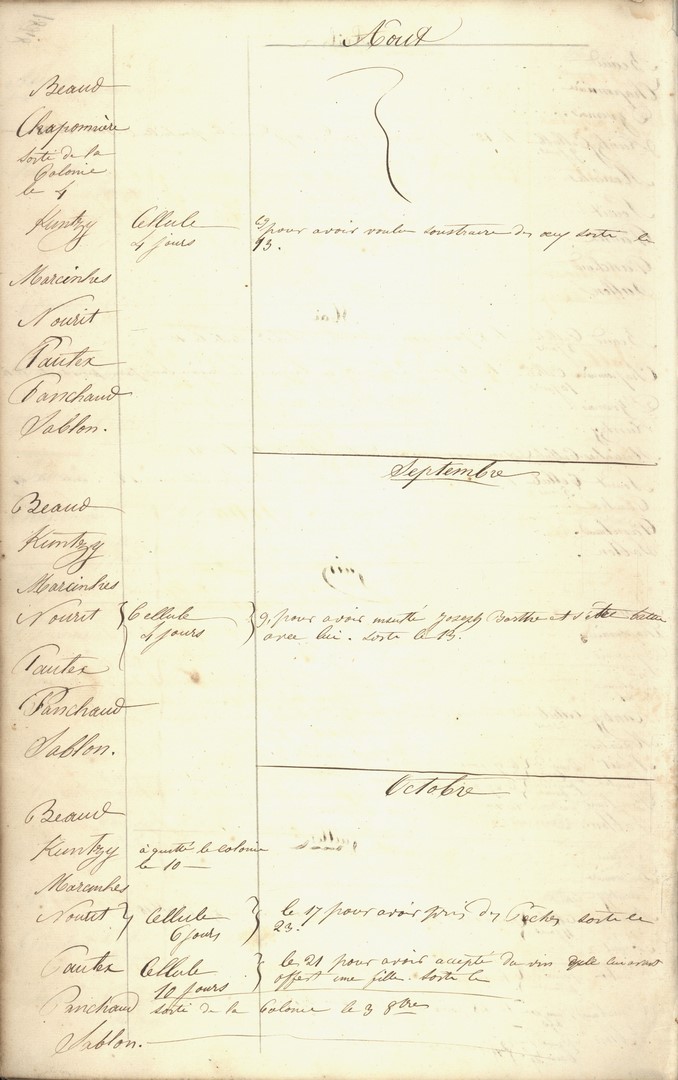 Aout
Beaud
Chaponnière
sorti de la
Colonie
le 4
Kuntzy Cellule 9, pour avoir voulu soustraire des œufs sorte le
4 jours 13.
Marcinhes
Nourit
Pautex
Panchaud
Sablon.
Septembre
Beaud
Kuntzy
Marcinhes
Nourit Cellule 9, pour avoir insulté Joseph Barthe et s'être battu
4 jours avec lui. sorte le 13.
Pautex
Panchaud
Sablon.
Octobre
Beaud
Kuntzy à quitté la colonie
le 10 —
Marcinhes
Nourit Cellule le 17 pour avoir pris des Pêches sorte le
6 jours 23.
Pautex Cellule le 21 pour avoir accepté du vin lui avait
10 jours offert une fille. Sorte le
Panchaud sorti de la Colonie le 3 8bre
Sablon.